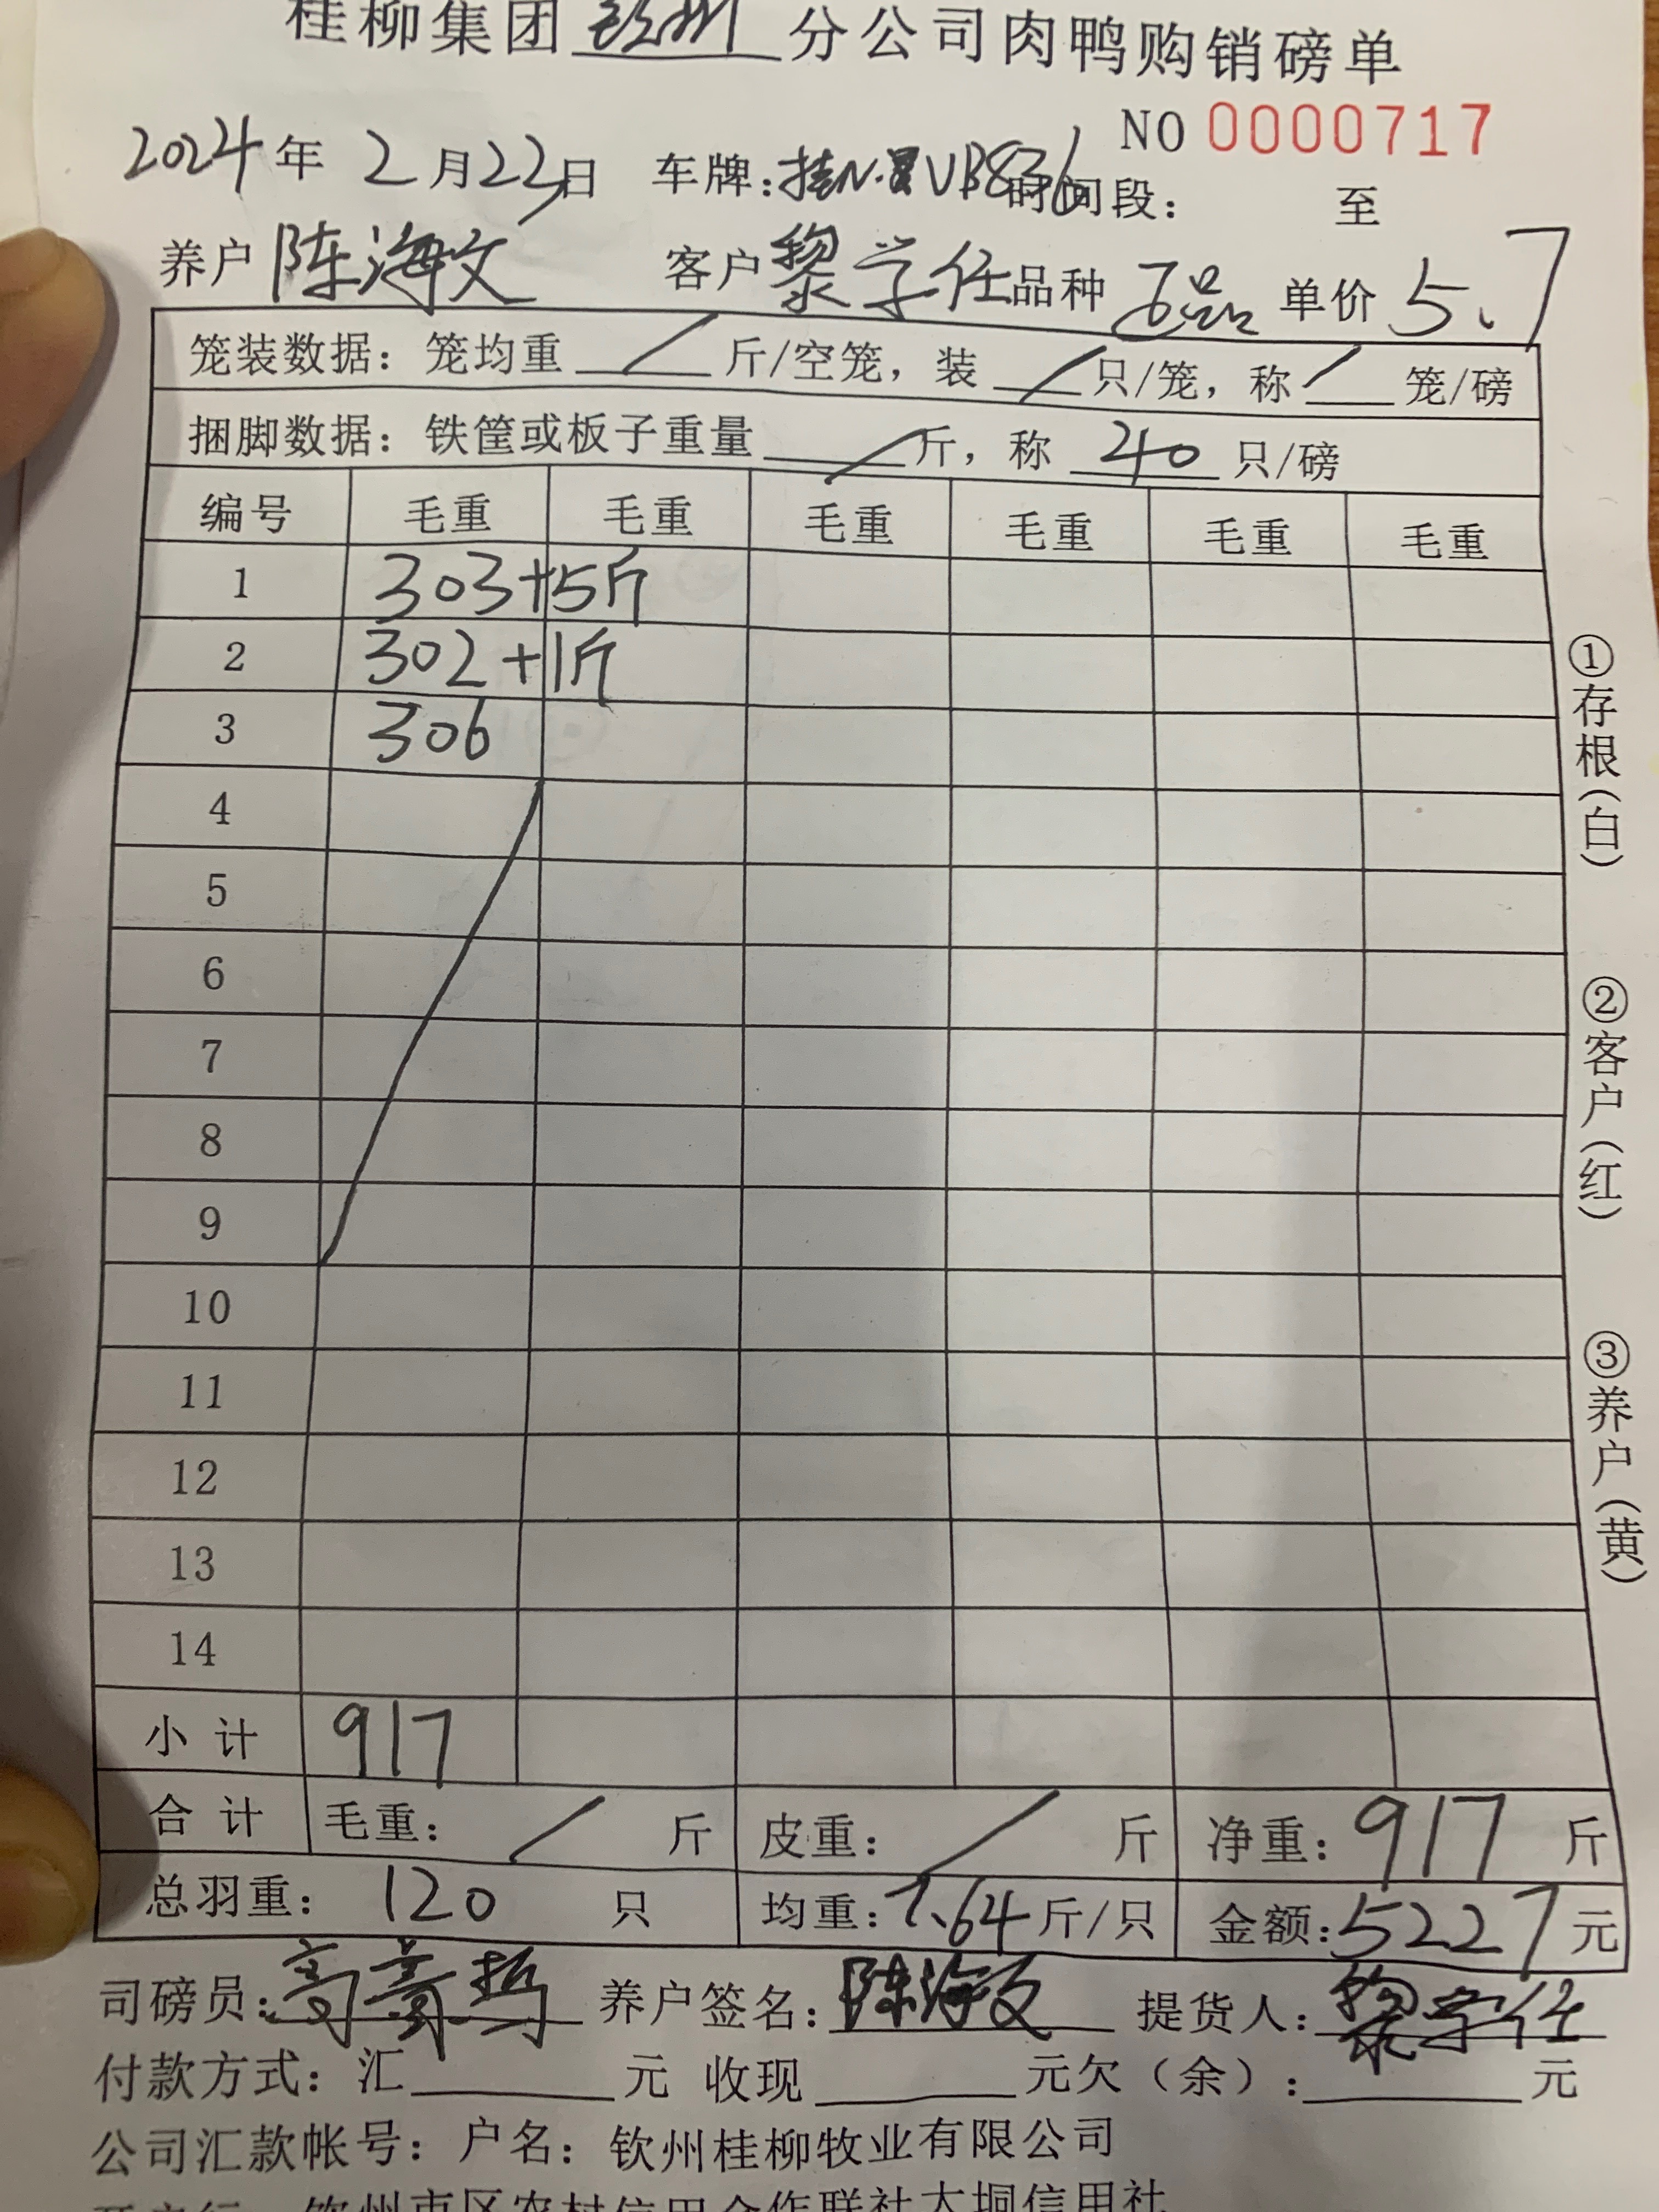 桂柳集团钦州分公司肉鸭购销磅单
NO 0000717
2024年2月22日 车牌：桂N·VB836 时间段： 至
养户 陈海文 客户 黎学任 品种 百品 单价 5.7
笼装数据：笼均重 / 斤/空笼，装 / 只/笼，称 / 笼/磅
捆脚数据：铁筐或板子重量 / 斤，称 40 只/磅
编号 毛重 毛重 毛重 毛重 毛重 毛重
1 303+5斤
2 302+1斤
3 306
4
5
6
7
8
9
10
11
12
13
14
小计 917
合计 毛重： / 斤 皮重： / 斤 净重：917 斤
总羽重： 120 只 均重：7.64斤/只 金额：5227元
司磅员： 养户签名：陈海文 提货人：黎学任
付款方式：汇 元 收现 元欠（余）： 元
公司汇款帐号：户名：钦州桂柳牧业有限公司
开户行：钦州市区农村信用合作联社大垌信用社
①存根（白）
②客户（红）
③养户（黄）